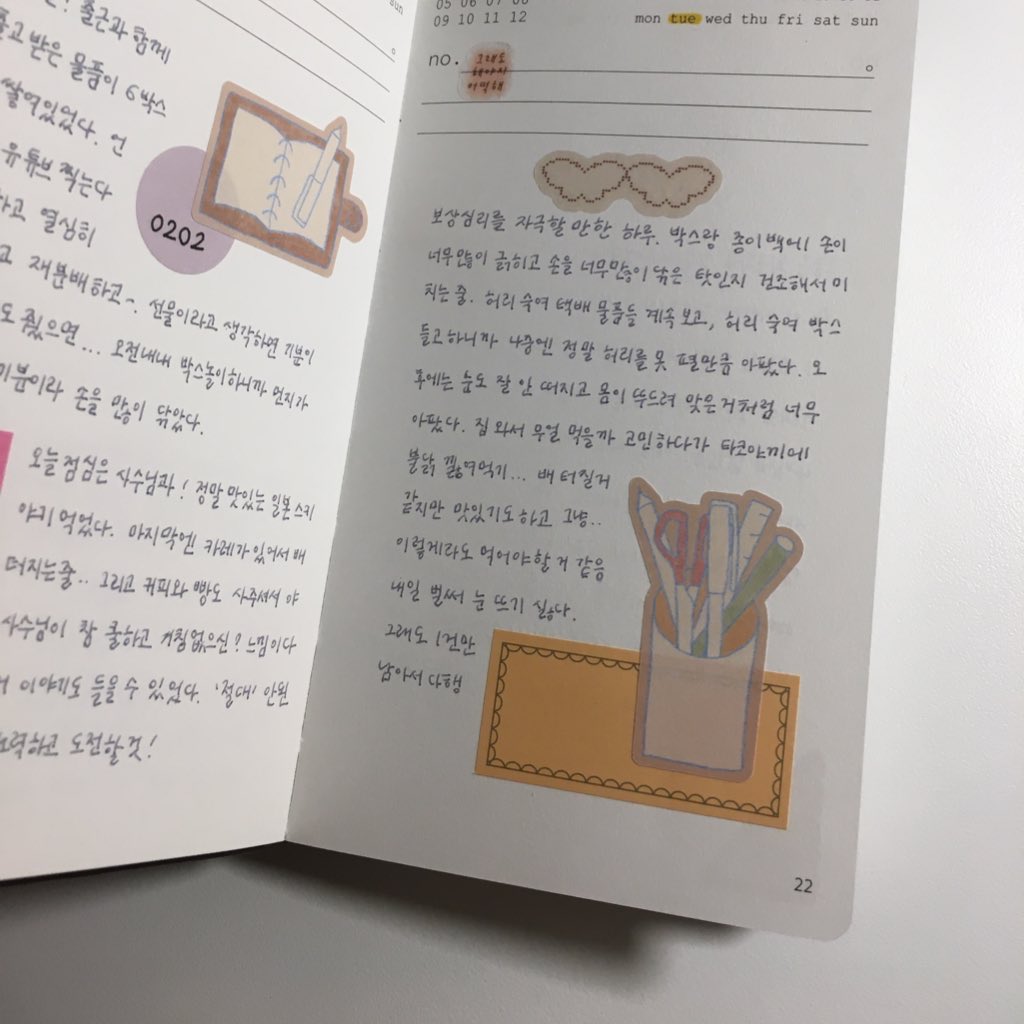 sun
! 출근과 함께
받은 물품이 6박스
쌓여있었다. 언
유튜브 찍는다
하고 열심히
0202
고 재분배하고~. 선물이라고 생각하면 기분이
도 줬으면... 오전내내 박스놀이하니까 먼지가
기분이라 손을 많이 닦았다.
오늘 점심은 사수님과! 정말 맛있는 일본 스키
야키 먹었다. 마지막엔 카레가 있어서 배
터지는줄.. 그리고 커피와 빵도 사주셔서 야
사수님이 참 쿨하고 거침없으신? 느낌이다
이야기도 들을 수 있었다. '절대' 안된
노력하고 도전할것!
05 06 07 08
09 10 11 12
mon tue wed thu fri sat sun
no. 그래도
해야지
어떡해
보상심리를 자극할 만한 하루. 박스랑 종이백에 손이
너무많이 긁히고 손을 너무많이 닦은 탓인지 건조해서 미
치는 줄. 허리 숙여 택배 물품들 계속 보고, 허리 숙여 박스
들고하니까 나중엔 정말 허리를 못 펼만큼 아팠다. 오
후에는 숨도 잘 안 떠지고 몸이 뚜드려 맞은거처럼 너무
아팠다. 집 와서 무얼 먹을까 고민하다가 타코야끼에
불닭 끓여먹기... 배 터질거
같지만 맛있기도 하고 그냥..
이렇게라도 먹어야할 거 같음
내일 벌써 눈 뜨기 싫다.
그래도 1건만
남아서 다행
22